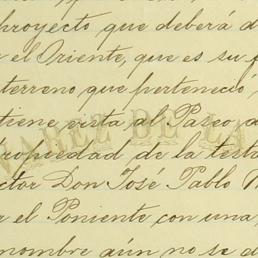 proyecto, que deberá d
el Oriente, que es su
terreno que perteneció,
tiene vista al Paseo d
VAREZ DE LA
propiedad de la testa
ctor Don José Pablo
el Poniente con una
nombre aún no se d